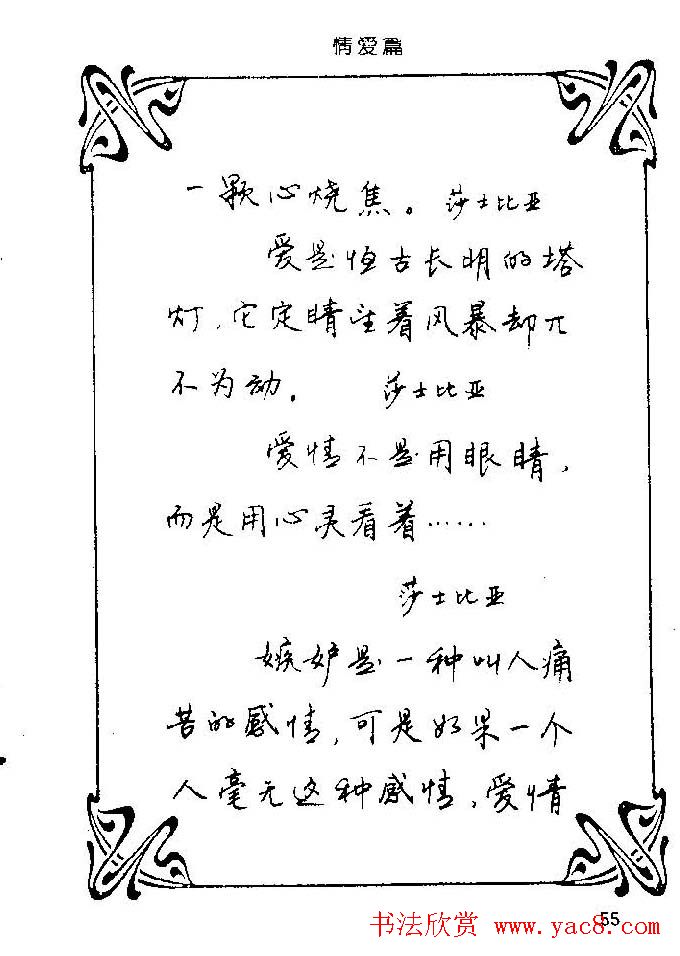 情爱篇
一颗心烧焦。 莎士比亚
爱是恒古长明的塔
灯,它定睛望着风暴却兀
不为动。 莎士比亚
爱情不是用眼睛,
而是用心灵看着……
莎士比亚
嫉妒是一种叫人痛
苦的感情,可是如果一个
人毫无这种感情,爱情
55
书法欣赏 www.yac8.com